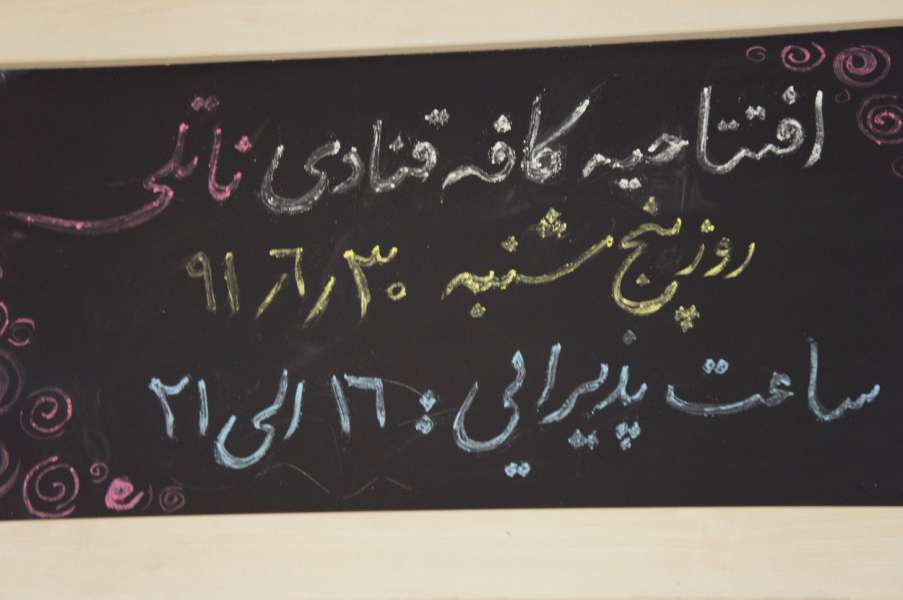 افتتاحیه کافه قنادی ناتلی
روز پنج شنبه ۹۱/۶/۳۰
ساعت پذیرائی : ۱۶ الی ۲۱